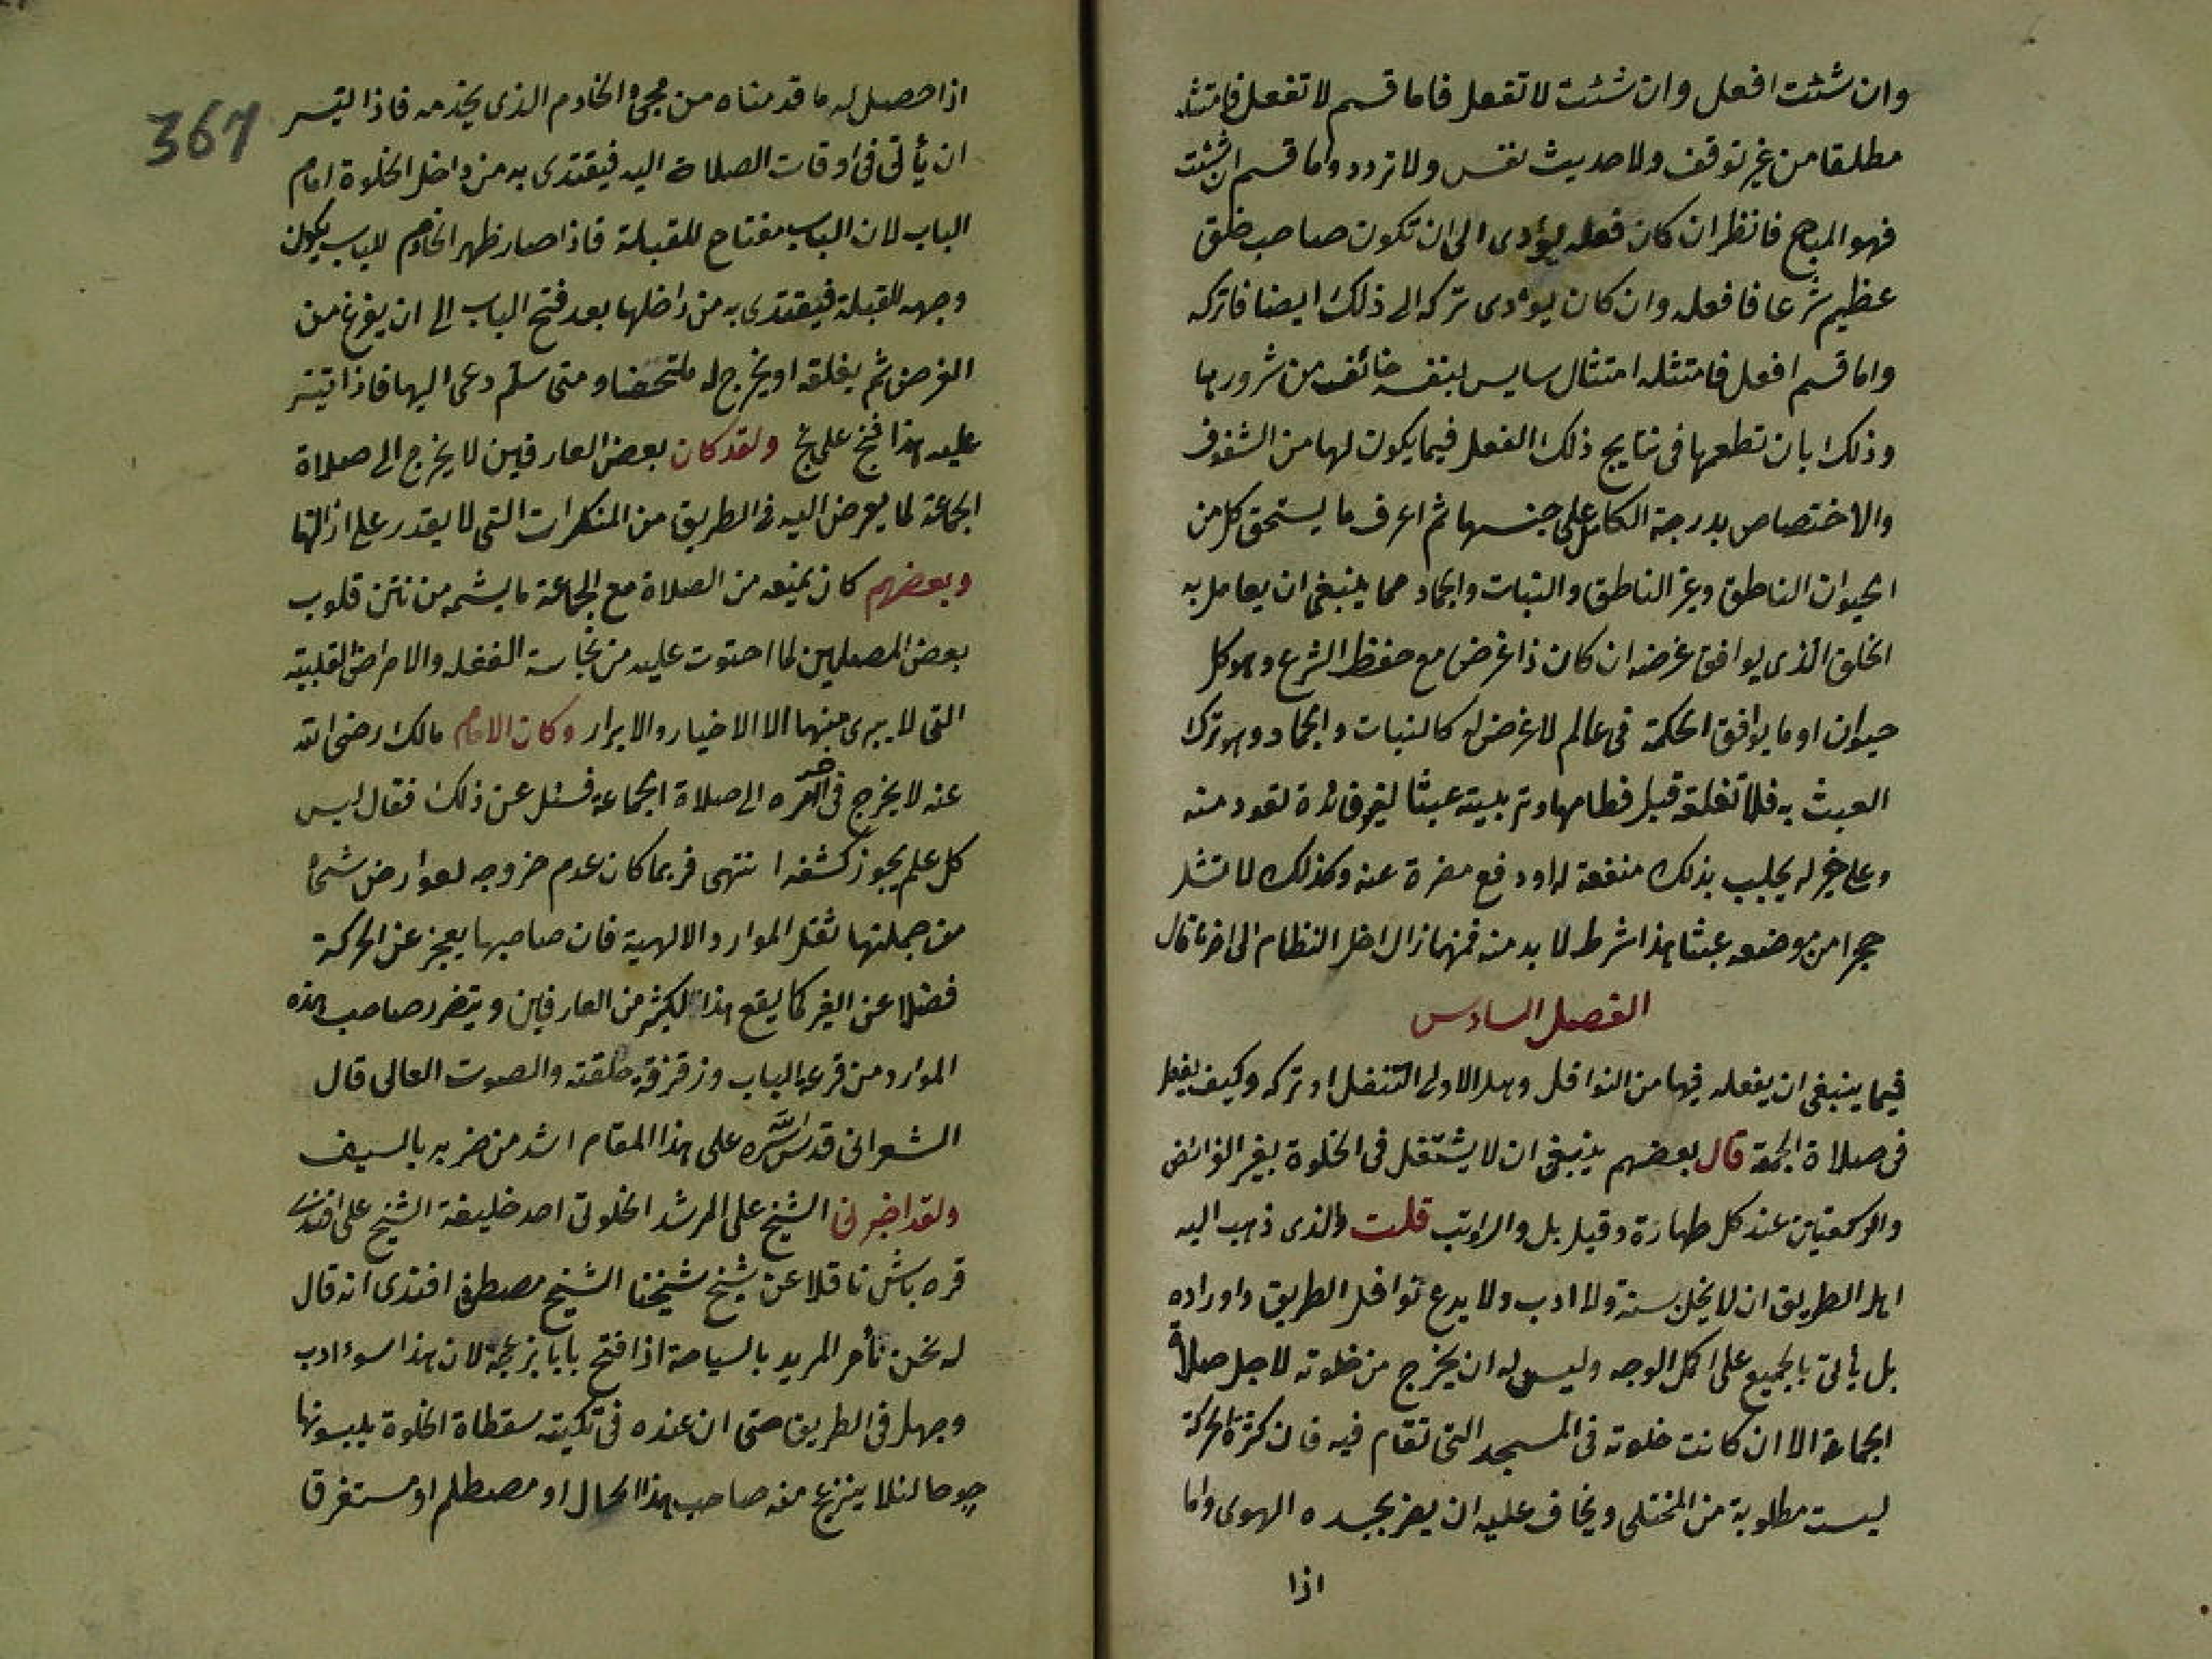 وان شئت افعل وان شئت لا تفعل فاما قسم لا تفعل فامتثله
مطلقا من غير توقف ولا حديث نفس ولا تردد واما قسم ان شئت
فهو المباح فانظر ان كان فعله يؤدى الى ان تكون صاحب خلق
عظيم شرعا فافعله وان كان يؤدى تركه الى ذلك ايضا فاتركه
واما قسم افعل فامتثله امتثال سايس بنفسه خائف من شرورها
وذلك بان تطعمها فى نتايج ذلك الفعل فيما يكون لها من الشفوف
والاختصاص بدرجة الكامل على جنسها ثم اعرف ما يستحق كل من
الحيوان الناطق وغير الناطق والنبات والجماد مما ينبغى ان يعامل به
الخلق الذى يوافق غرضه ان كان ذا غرض مع حفظ الشرع وهو كل
حيوان او ما يوافق الحكمة فى عالم لا غرض له كالنبات والجماد وهو ترك
العبث به فلا تفلقه قبل فطامها وتربيته عبثا لغير فائدة تعود منه
وعلى غير له يجلب بذلك منفعة له او دفع مضرة عنه وكذلك لا تنتقل
حجرا من موضعه عبثا هذا شرط لا بد منه فمنها زال اختل النظام الى اخر ما قال
الفصل السادس
فيما ينبغى ان يفعله فيها من النوافل وهل الاولى التنفل او تركه وكيف يفعل
فى صلاة الجمعة قال بعضهم ينبغى ان لا يشتغل فى الخلوة بغير الفرائض
والركعتين عند كل طهارة وقيل بل والراتب قلت والذى ذهب اليه
اهل الطريق ان لا يخل بسنة ولا ادب ولا يدع نوافل الطريق واوراده
بل يأتى بالجميع على اكمل الوجه وليس له ان يخرج من خلوته لاجل صلاة
الجماعة الا ان كانت خلوته فى المسجد التى تقام فيه فان كثرة الحركة
ليست مطلوبة من المختلى ويخاف عليه ان يضر بجسده الهوى واما
اذا
367
اذا حصل له ما قدمناه من مجئ الخادم الذى يخدمه فاذا تيسر
ان يأتى فى اوقات الصلاة اليه فيقتدى به من داخل الخلوة امام
الباب لان الباب مفتاح للقبلة فاذا صار ظهر الخادم للباب يكون
وجهه للقبلة فيقتدى به من داخلها بعد فتح الباب الى ان يفرغ من
الفرض ثم يغلقه او يخرج له ملتحفا ومتى سلم دعى اليها فاذا تيسر
عليه هذا فبخ على بخ ولقد كان بعض العارفين لا يخرج الى صلاة
الجماعة لما يعرض اليه فى الطريق من المنكرات التى لا يقدر على ازالتها
وبعضهم كان يمنعه من الصلاة مع الجماعة ما يشمه من نتن قلوب
بعض المصلين لما احتوت عليه من نجاسة الغفلة والامراض القلبية
التى لا يبرى منها الا الاخيار والابرار وكان الامام مالك رضى الله
عنه لا يخرج فى آخر عمره الى صلاة الجماعة فسئل عن ذلك فقال ليس
كل علم يجوز كشفه انتهى فربما كان عدم خروجه لعوارض شتى
من جملتها ثقل الموارد الالهية فان صاحبها يعجز عن الحركة
فضلا عن الغير كما يقع هذا لكثير من العارفين ويتضرر صاحب هذه
الموارد من قرعه الباب وزقزقة حلقته والصوت العالى قال
الشعرانى قدس الله سره على هذا المقام اشد من ضربه بالسيف
ولقد اخبرنى الشيخ على المرشد الخلوتى احد خليفة الشيخ على افندى
قره باش ناقلا عن شيخ شيخنا الشيخ مصطفى افندى انه قال
له نحن نأمر المريد بالسياحة اذا فتح بابا بزعجة لان هذا سوء ادب
وجهل فى الطريق حتى ان عنده فى تكيته سقطاة الخلوة يلبسونها
جوخا لئلا ينزعج منه صاحب هذا الحال او مصطلم او مستغرق